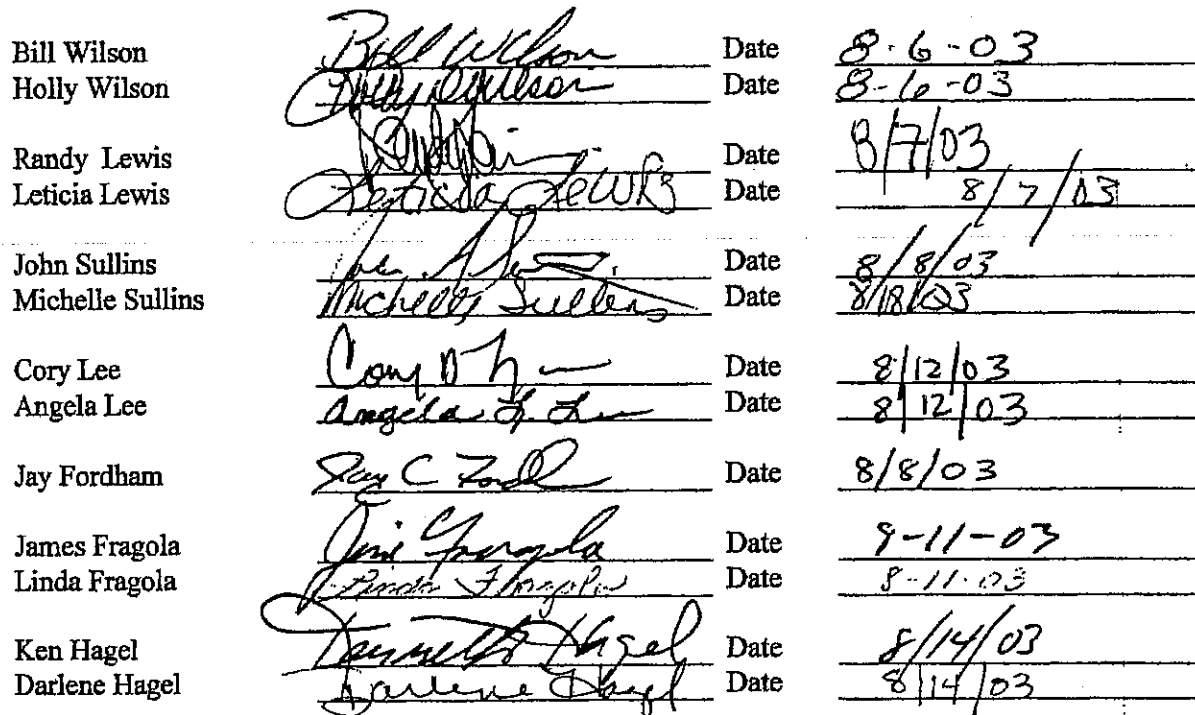 Bill Wilson Bill Wilson Date 8-6-03
Holly Wilson Holly Wilson Date 8-6-03
Randy Lewis Date 8/7/03
Leticia Lewis Leticia Lewis Date 8/7/03
John Sullins John Date 8/8/03
Michelle Sullins Michelle Sullins Date 8/18/03
Cory Lee Cory D Date 8/12/03
Angela Lee Angela L. Lee Date 8/12/03
Jay Fordham Jay C Date 8/8/03
James Fragola Jim Fragola Date -11-03
Linda Fragola Linda Fragola Date 8-11-03
Ken Hagel Kenneth Hagel Date 8/14/03
Darlene Hagel Darlene Hagel Date 8/14/03